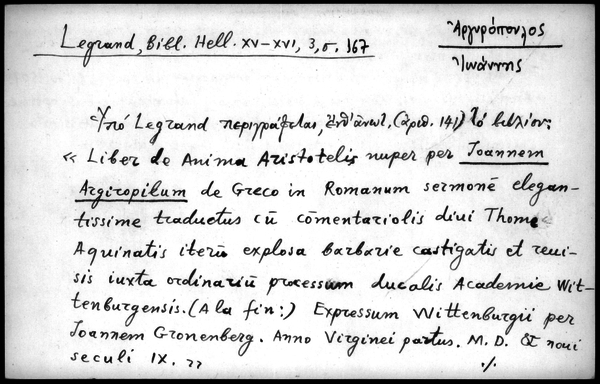 Legrand, Bibl. Hell. XV-XVI, 3, σ. 167
Ἀργυρόπουλος
Ἰωάννης
Ὑπό Legrand περιγράφεται, ἔνθ' ἀνωτ, (ἀριθ. 141) τό βιβλίον:
« Liber de Anima Aristotelis nuper per Joannem
Argiropilum de Greco in Romanum sermonē elegan-
tissime traductus cū cōmentariolis diui Thome
Aquinatis iterū explosa barbarie castigatis et reui-
sis iuxta ordinariū processum ducalis Academie Wit-
tenburgensis. (A la fin:) Expressum Wittenburgii per
Joannem Gronenberg. Anno Virginei partus. M.D. & noui
seculi IX. »
./.